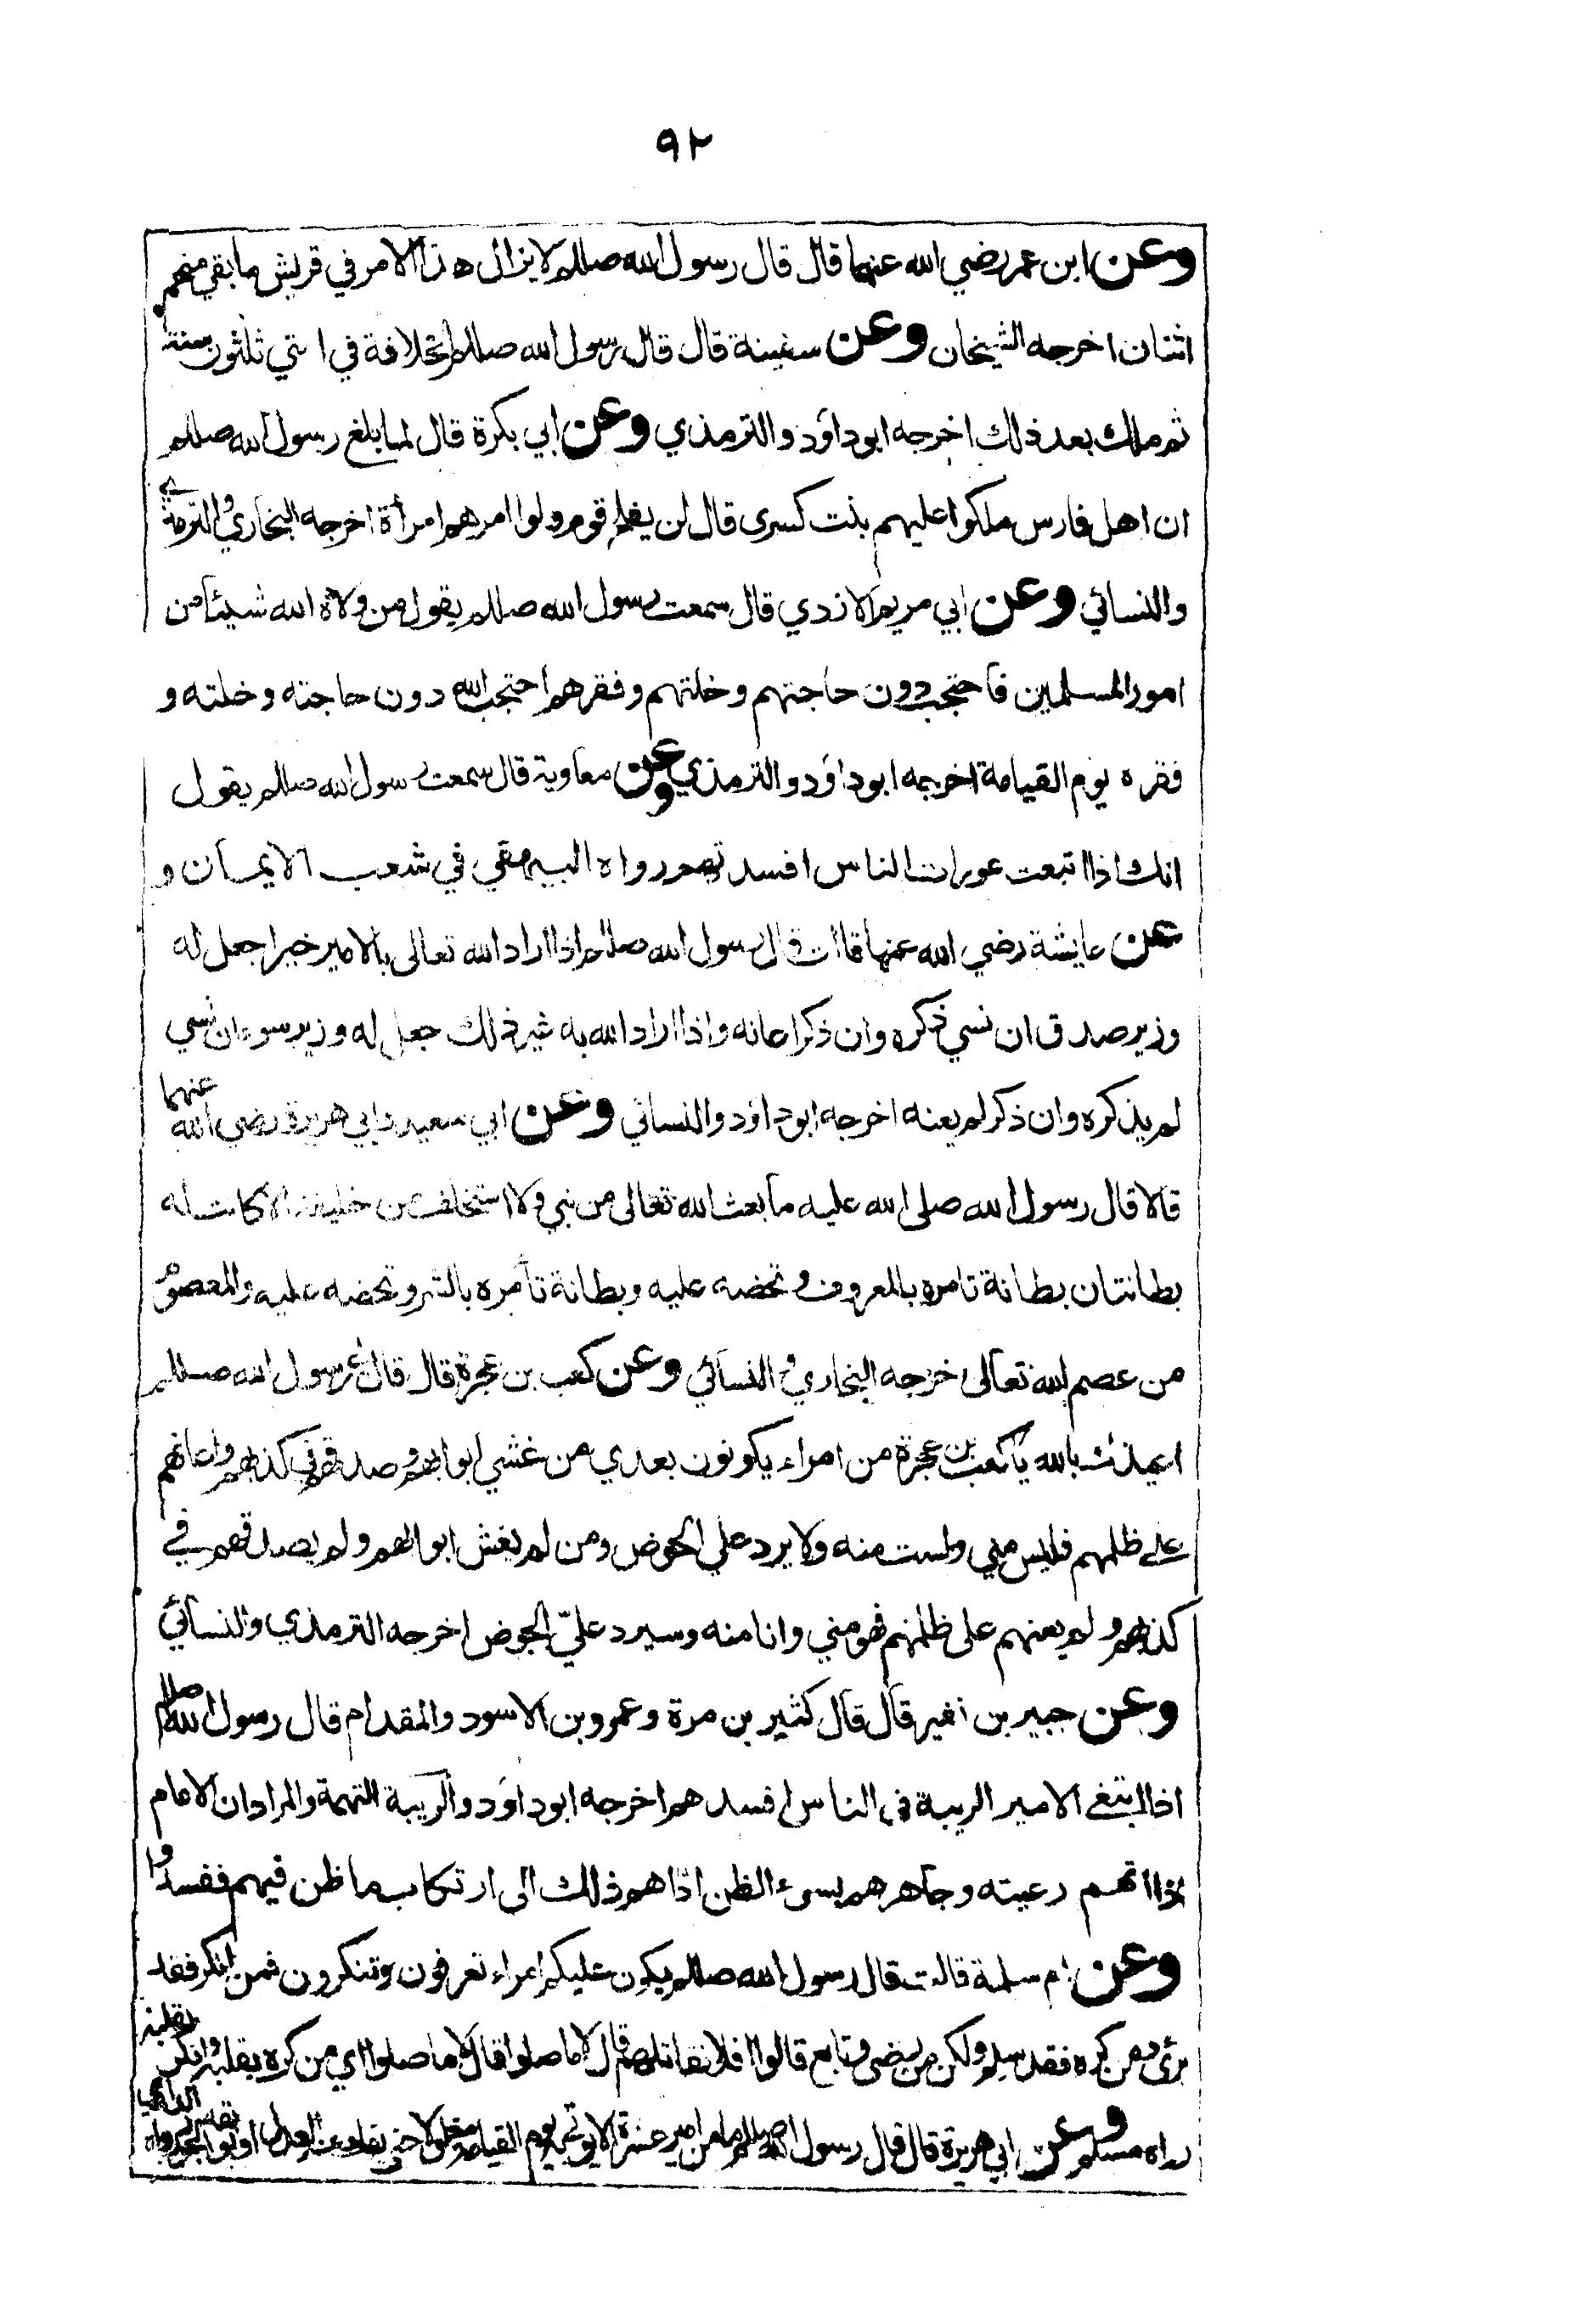 ٩٢
وعن ابن عمر رضي الله عنهما قال قال رسول الله صللم لا يزال هذا الامر في قريش ما بقي منهم
اثنان اخرجه الشيخان وعن سفينة قال قال رسول الله صللم الخلافة في امتي ثلثون سنة
ثم ملك بعد ذلك اخرجه ابو داؤد والترمذي وعن ابي بكرة قال لما بلغ رسول الله صللم
ان اهل فارس ملكوا عليهم بنت كسرى قال لن يفلح قوم ولوا امرهم امرأة اخرجه البخاري والترمذي
والنسائي وعن ابي مريم الازدي قال سمعت رسول الله صللم يقول من ولاه الله شيئا من
امور المسلمين فاحتجب دون حاجتهم وخلتهم وفقرهم احتجب الله دون حاجته وخلته و
فقره يوم القيامة اخرجه ابو داؤد والترمذي وعن معاوية قال سمعت رسول الله صللم يقول
انك اذا اتبعت عورات الناس افسدتهم رواه البيهقي في شعب الايمان و
عن عايشة رضي الله عنها قالت قال رسول الله صللم اذا اراد الله تعالى بالامير خيرا جعل له
وزير صدق ان نسي ذكره وان ذكر اعانه واذا اراد الله به غير ذلك جعل له وزير سوء ان نسي
لم يذكره وان ذكر لم يعنه اخرجه ابو داؤد والنسائي وعن ابي سعيد وابي هريرة رضي الله عنهما
قالا قال رسول الله صلى الله عليه ما بعث الله تعالى من نبي ولا استخلف من خليفة الا كانت له
بطانتان بطانة تامره بالمعروف وتحضه عليه وبطانة تأمره بالشر وتحضه عليه والمعصوم
من عصم الله تعالى اخرجه البخاري والنسائي وعن كعب بن عجرة قال قال رسول الله صللم
اعيذك بالله يا كعب بن عجرة من امراء يكونون بعدي من غشي ابوابهم وصدقهم في كذبهم واعانهم
على ظلمهم فليس مني ولست منه ولا يرد علي الحوض ومن لم يغش ابوابهم ولم يصدقهم في
كذبهم ولم يعنهم على ظلمهم فهو مني وانا منه وسيرد عليّ الحوض اخرجه الترمذي والنسائي
وعن جبير بن نفير قال قال كثير بن مرة وعمرو بن الاسود والمقدام قال رسول الله صللم
اذا ابتغى الامير الريبة في الناس افسدهم اخرجه ابو داؤد والريبة التهمة والمراد ان الامام
اذا اتهم رعيته وجاهرهم بسوء الظن اداهم ذلك الى ارتكاب ما ظن فيهم ففسدوا
وعن ام سلمة قالت قال رسول الله صللم يكون عليكم امراء تعرفون وتنكرون فمن انكر فقد
برئ ومن كره فقد سلم ولكن من رضي وتابع قالوا افلا نقاتلهم قال لا ما صلوا قال لا ما صلوا اي من كره بقلبه وانكر بقلبه
رواه مسلم وعن ابي هريرة قال قال رسول الله صللم ما من امير عشرة الا يؤتى به يوم القيامة مغلولا حتى يفك عنه العدل او يوبقه الجور رواه الدارمي